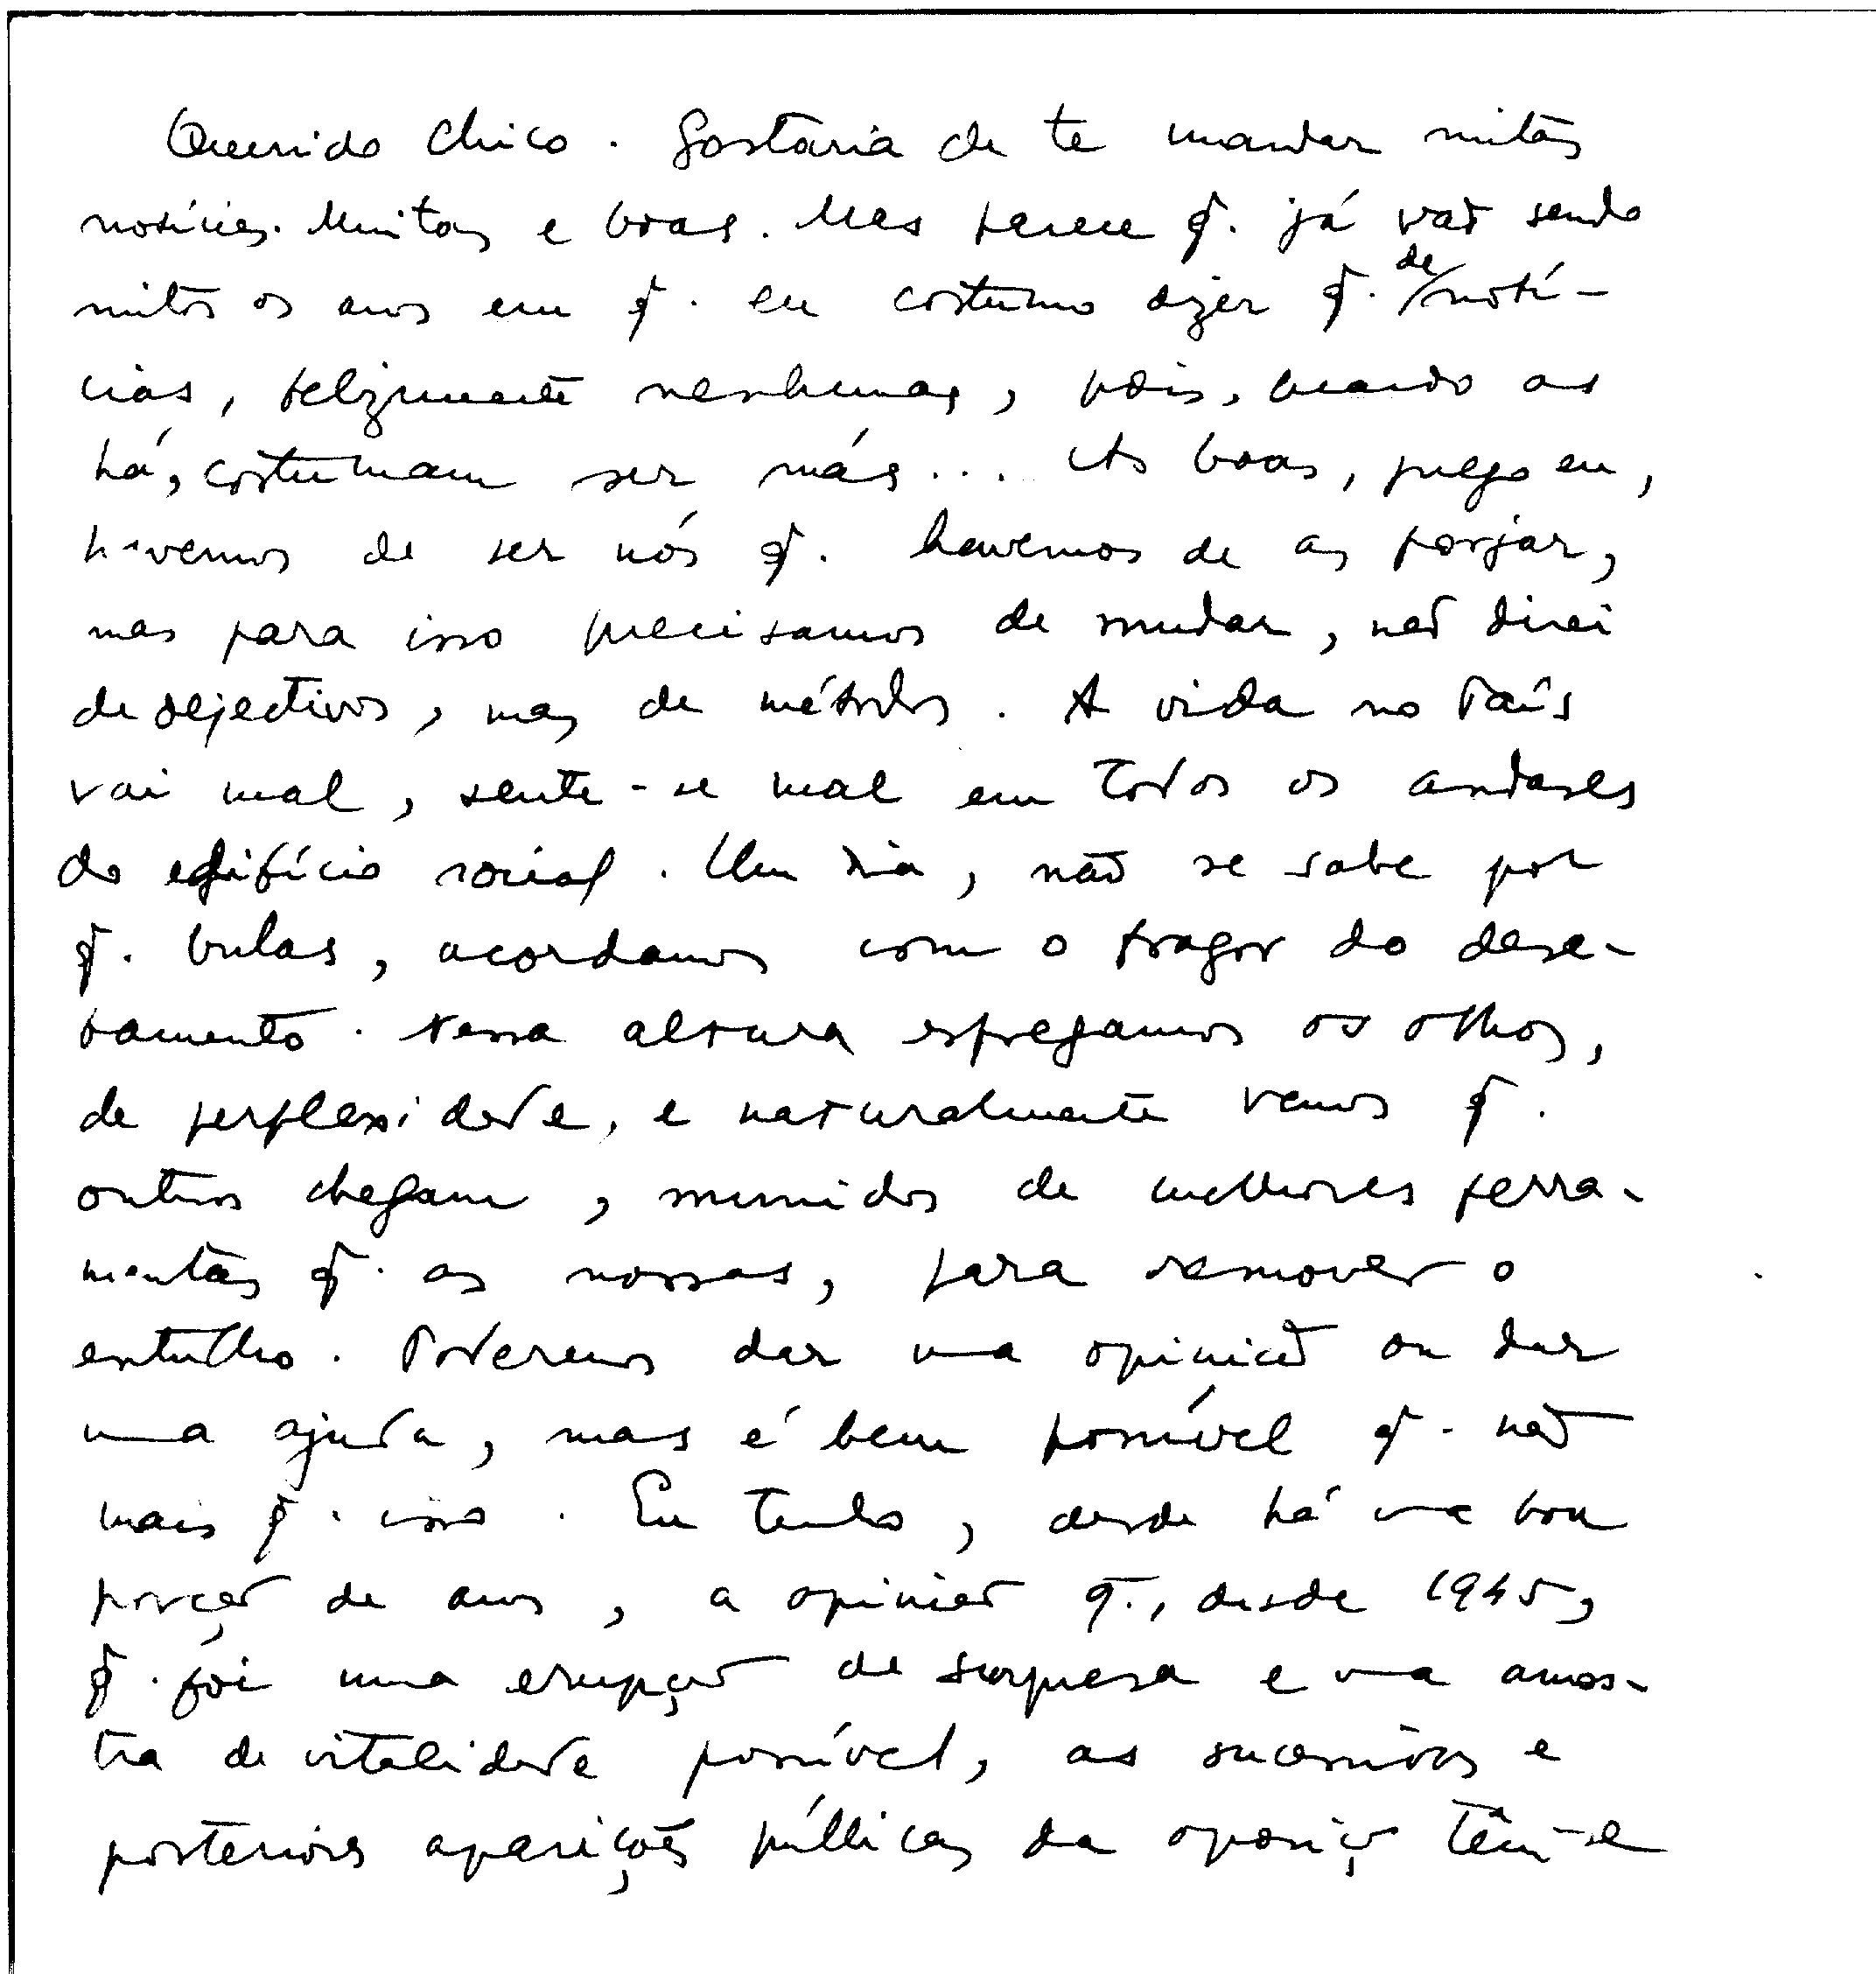 Querido Chico. Gostaria de te mandar muitas
notícias. Muitas e boas. Mas parece q. já vão sendo
muitos os anos em q. eu costumo dizer q. de notí-
cias, felizmente nenhumas, pois, quando as
há, costumam ser más... As boas, julgo eu,
havemos de ser nós q. havemos de as forjar,
mas para isso precisamos de mudar, não direi
de objectivos, mas de métodos. A vida no País
vai mal, sente-se mal em todos os andares
do edifício social. Um dia, não se sabe por
q. bulas, acordamos com o fragor do desa-
bamento. Nessa altura esfregamos os olhos,
de perplexidade, e naturalmente vemos q.
outros chegam, munidos de melhores ferra-
mentas q. as nossas, para remover o
entulho. Poderemos dar uma opinião ou dar
uma ajuda, mas é bem possível q. não
mais q. isso. Eu tenho, desde há uma boa
porção de anos, a opinião q., desde 1945,
q. foi uma erupção de surpresa e uma amos-
tra de vitalidade possível, as sucessivas e
posteriores aparições públicas da oposiç têm-se